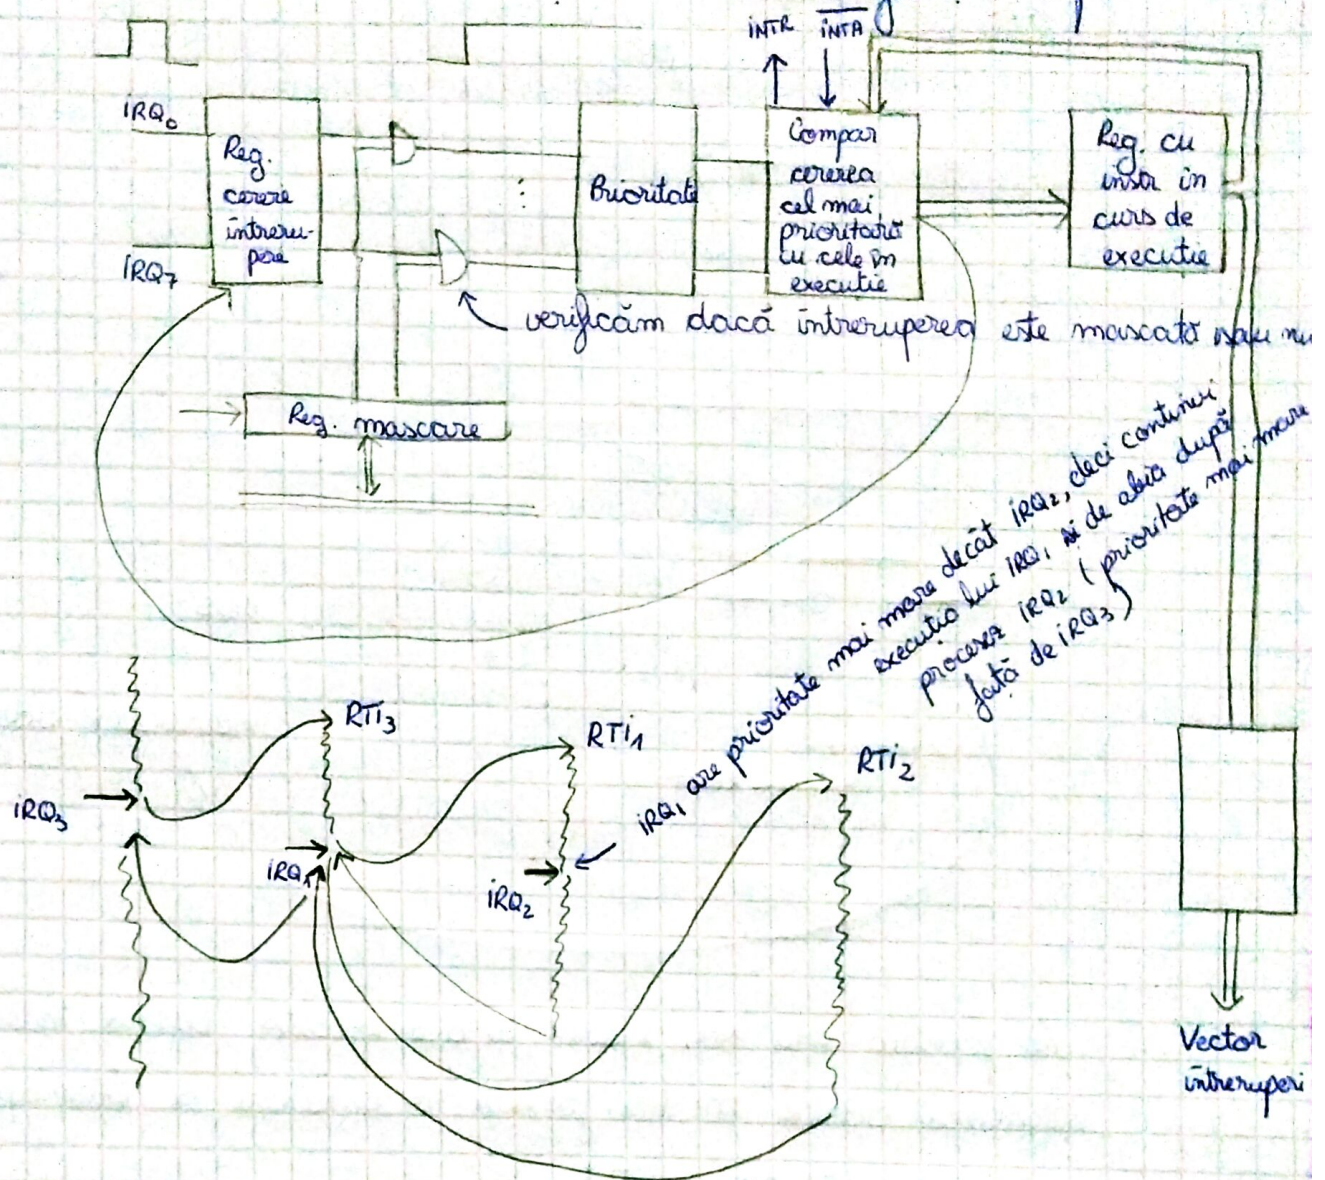 INTR INTA
IRQ0
IRQ7
Reg.
cerere
întreru-
pere
Prioritate
Compar
cererea
cel mai
prioritară
cu cele în
executie
Reg. cu
instr în
curs de
executie
verificăm dacă întreruperea este mascată sau nu
Reg. mascare
IRQ1 are prioritate mai mare decât IRQ2, deci continui
executia lui IRQ1 si de abia după
procesez IRQ2 (prioritate mai mare
față de IRQ3)
RTI3
RTI1
RTI2
IRQ3
IRQ1
IRQ2
Vector
întreruperi